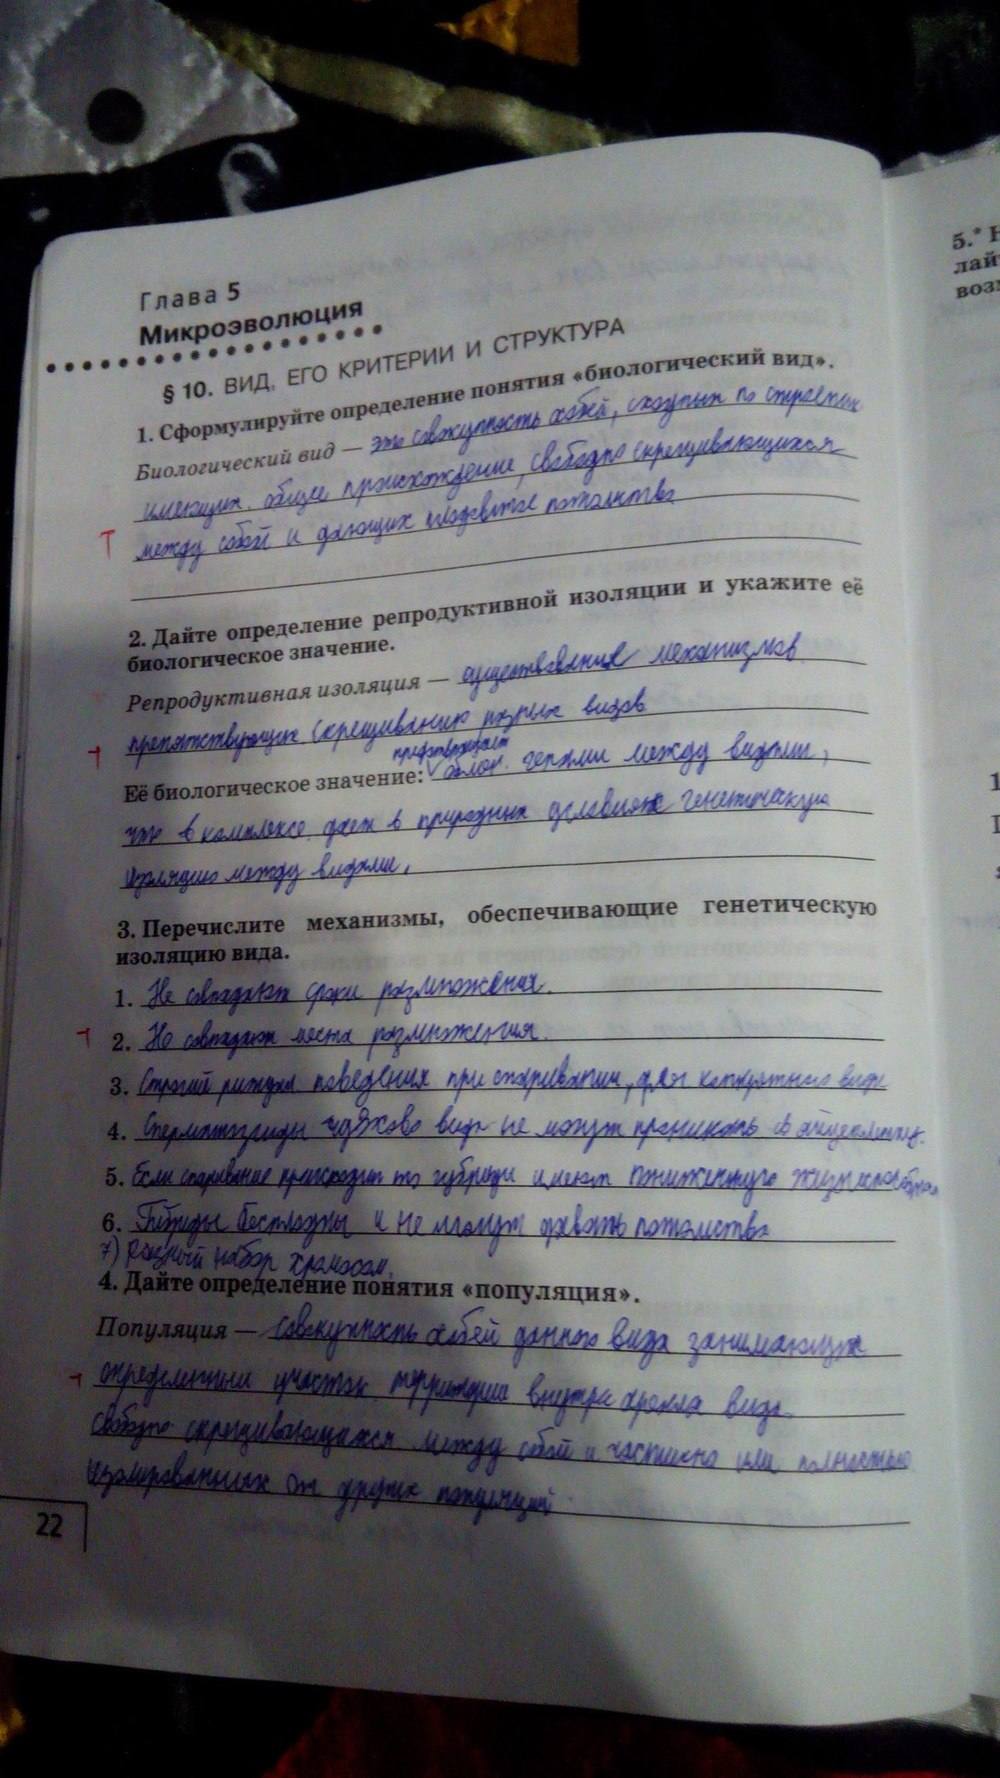 Глава 5
Микроэволюция
§ 10. ВИД, ЕГО КРИТЕРИИ И СТРУКТУРА
1. Сформулируйте определение понятия «биологический вид».
Биологический вид — это совокупность особей, сходных по строению
имеющих общее происхождение, свободно скрещивающихся
между собой и дающих плодовитое потомство
2. Дайте определение репродуктивной изоляции и укажите её
биологическое значение.
Репродуктивная изоляция — существование механизмов
препятствующих скрещиванию разных видов
предотвращает
Её биологическое значение: обмен генами между видами,
что в комплексе дает в природных условиях генетическую
изоляцию между видами.
3. Перечислите механизмы, обеспечивающие генетическую
изоляцию вида.
1. Не совпадают сроки размножения.
2. Не совпадают места размножения.
3. Строгий ритуал поведения при спаривании, для конкретного вида
4. Сперматозоиды чужого вида не могут проникать в яйцеклетку.
5. Если спаривание происходит то гибриды имеют пониженную
6. Гибриды бесплодны и не могут давать потомство
7) Разный набор хромосом.
4. Дайте определение понятия «популяция».
Популяция — совокупность особей данного вида занимающих
определенный участок территории внутри ареала вида
свободно скрещивающихся между собой и частично или полностью
изолированных от других популяций.
22
5.* Н
лай
воз
1